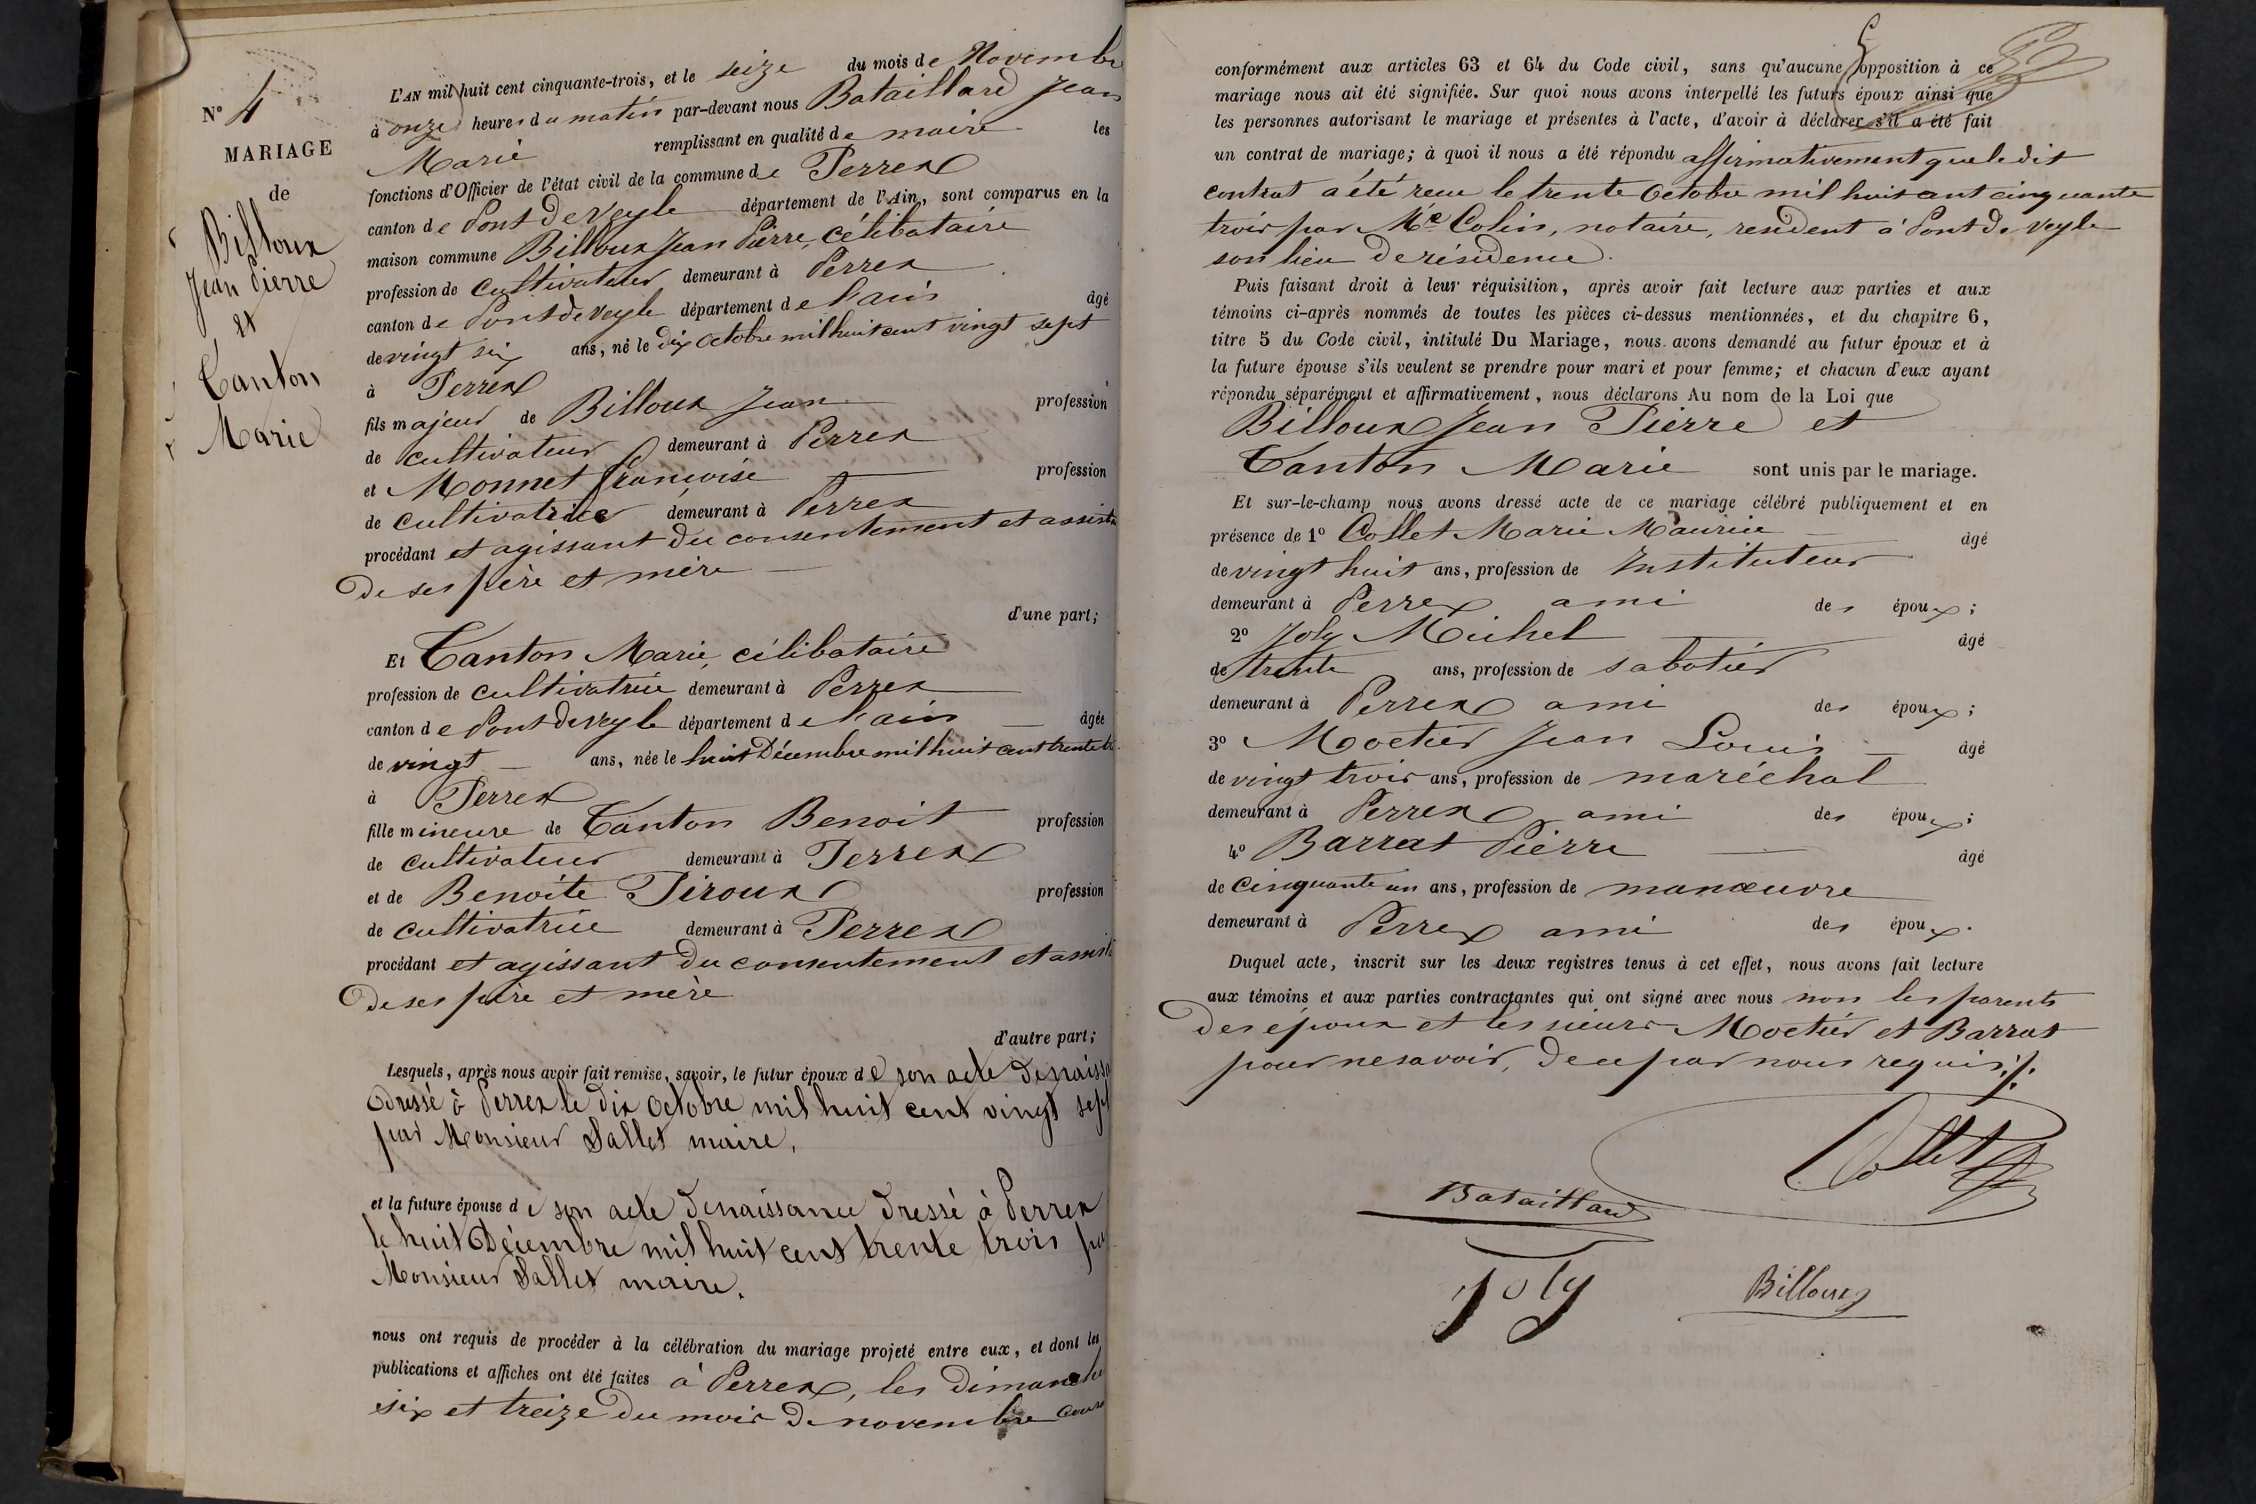 N° 4
MARIAGE
de
Billoux
Jean Pierre
et
Tanton
Marie
L'AN mil huit cent cinquante-trois, et le seize du mois de Novembre
à onze heures du matin par-devant nous Bataillard Jean
Marie remplissant en qualité de maire les
fonctions d'Officier de l'état civil de la commune de Perrex
canton de Pont de Veyle département de l'Ain, sont comparus en la
maison commune Billoux Jean Pierre, célibataire
profession de cultivateur demeurant à Perrex
canton de Pont de Veyle département de l'ain âgé
de vingt six ans, né le dix octobre mil huit cent vingt sept
à Perrex
fils majeur de Billoux Jean profession
de cultivateur demeurant à Perrex
et Monnet françoise profession
de cultivatrice demeurant à Perrex
procédant et agissant du consentement et assisté
de ses père et mère
d'une part;
Et Tanton Marie, célibataire
profession de cultivatrice demeurant à Perrex
canton de Pont de Veyle département de l'ain âgée
de vingt ans, née le huit Décembre mil huit cent trente
à Perrex
fille mineure de Tanton Benoit profession
de cultivateur demeurant à Perrex
et de Benoite Piroux profession
de cultivatrice demeurant à Perrex
procédant et agissant du consentement et assisté
de ses père et mère
d'autre part;
Lesquels, après nous avoir fait remise, savoir, le futur époux de son acte de naissa
dressé à Perrex le dix octobre mil huit cent vingt sept
par Monsieur Sallet maire.
et la future épouse de son acte de naissance dressé à Perrex
le huit Décembre mil huit cent trente trois par
Monsieur Sallet maire.
nous ont requis de procéder à la célébration du mariage projeté entre eux, et dont les
publications et affiches ont été faites à Perrex, les dimanche
six et treize du mois de novembre cour
conformément aux articles 63 et 64 du Code civil, sans qu'aucune opposition à ce
mariage nous ait été signifiée. Sur quoi nous avons interpellé les futurs époux ainsi que
les personnes autorisant le mariage et présentes à l'acte, d'avoir à déclarer s'il a été fait
un contrat de mariage; à quoi il nous a été répondu affirmativement que le dit
contrat a été reçu le trente Octobre mil huit cent cinquante
trois par Me Colin, notaire, résident à Pont de Veyle
son lieu de résidence.
Puis faisant droit à leur réquisition, après avoir fait lecture aux parties et aux
témoins ci-après nommés de toutes les pièces ci-dessus mentionnées, et du chapitre 6,
titre 5 du Code civil, intitulé Du Mariage, nous avons demandé au futur époux et à
la future épouse s'ils veulent se prendre pour mari et pour femme; et chacun d'eux ayant
répondu séparément et affirmativement, nous déclarons Au nom de la Loi que
Billoux Jean Pierre et
Tanton Marie sont unis par le mariage.
Et sur-le-champ nous avons dressé acte de ce mariage célébré publiquement et en
présence de 1° Collet Marie Maurice âgé
de vingt huit ans, profession de Instituteur
demeurant à Perrex ami des époux;
2° Joly Michel âgé
de trente ans, profession de sabotier
demeurant à Perrex ami des époux;
3° Moctier Jean Louis âgé
de vingt trois ans, profession de maréchal
demeurant à Perrex ami des époux;
4° Barrat Pierre âgé
de cinquante un ans, profession de manœuvre
demeurant à Perrex ami des époux.
Duquel acte, inscrit sur les deux registres tenus à cet effet, nous avons fait lecture
aux témoins et aux parties contractantes qui ont signé avec nous non les parents
des époux et les sieurs Moctier et Barrat
pour ne savoir, de ce par nous requis ./.
Collet
Bataillard
Joly
Billoux